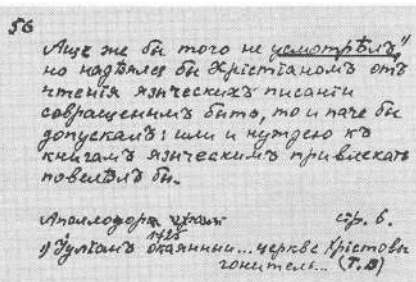 56
Аще же бы того не усмотрѣлъ,"
но надѣялся бы Хрістіаномъ отъ
чтенія язическихъ писаніи
совращеннимъ быть, то и паче бы
допускалъ: или и нуждею къ
книгамъ язическимъ привлекать
повелѣлъ бы.
Аполлодора стр. 6.
1725
1) Іуліанъ окаянныи... церкве Хрістовы
гонитель... (Т. В)